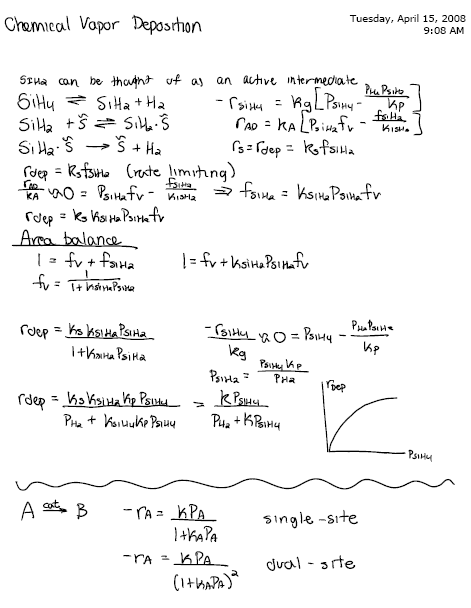 Chemical Vapor Deposition
Tuesday, April 15, 2008
9:08 AM
SiH2 can be thought of as an active intermediate
SiH4 ⇌ SiH2 + H2    -rSiH4 = kg[PSiH4 - PH2PSiH2/KP]
SiH2 + Ŝ ⇌ SiH2·Ŝ    rAD = kA[PSiH2fv - fSiH2/KSiH2]
SiH2·Ŝ → Ŝ + H2    rS = rdep = kSfSiH2
rdep = kSfSiH2 (rate limiting)
rAD/kA ≈ 0 = PSiH2fv - fSiH2/KSiH2 ⇒ fSiH2 = KSiH2PSiH2fv
rdep = kS KSiH2PSiH2fv
Area balance
1 = fv + fSiH2    1 = fv + KSiH2PSiH2fv
fv = 1/(1 + KSiH2PSiH2)
rdep = kS KSiH2PSiH2/(1 + KSiH2PSiH2)    -rSiH4/kg ≈ 0 = PSiH4 - PH2PSiH2/KP
PSiH2 = PSiH4KP/PH2
rdep = kS KSiH2KPPSiH4/(PH2 + KSiH4KPPSiH4) = kPSiH4/(PH2 + KPSiH4)
rDep
PSiH4
A cat→ B    -rA = kPA/(1+KAPA)    single-site
-rA = kPA/(1+KAPA)²    dual-site